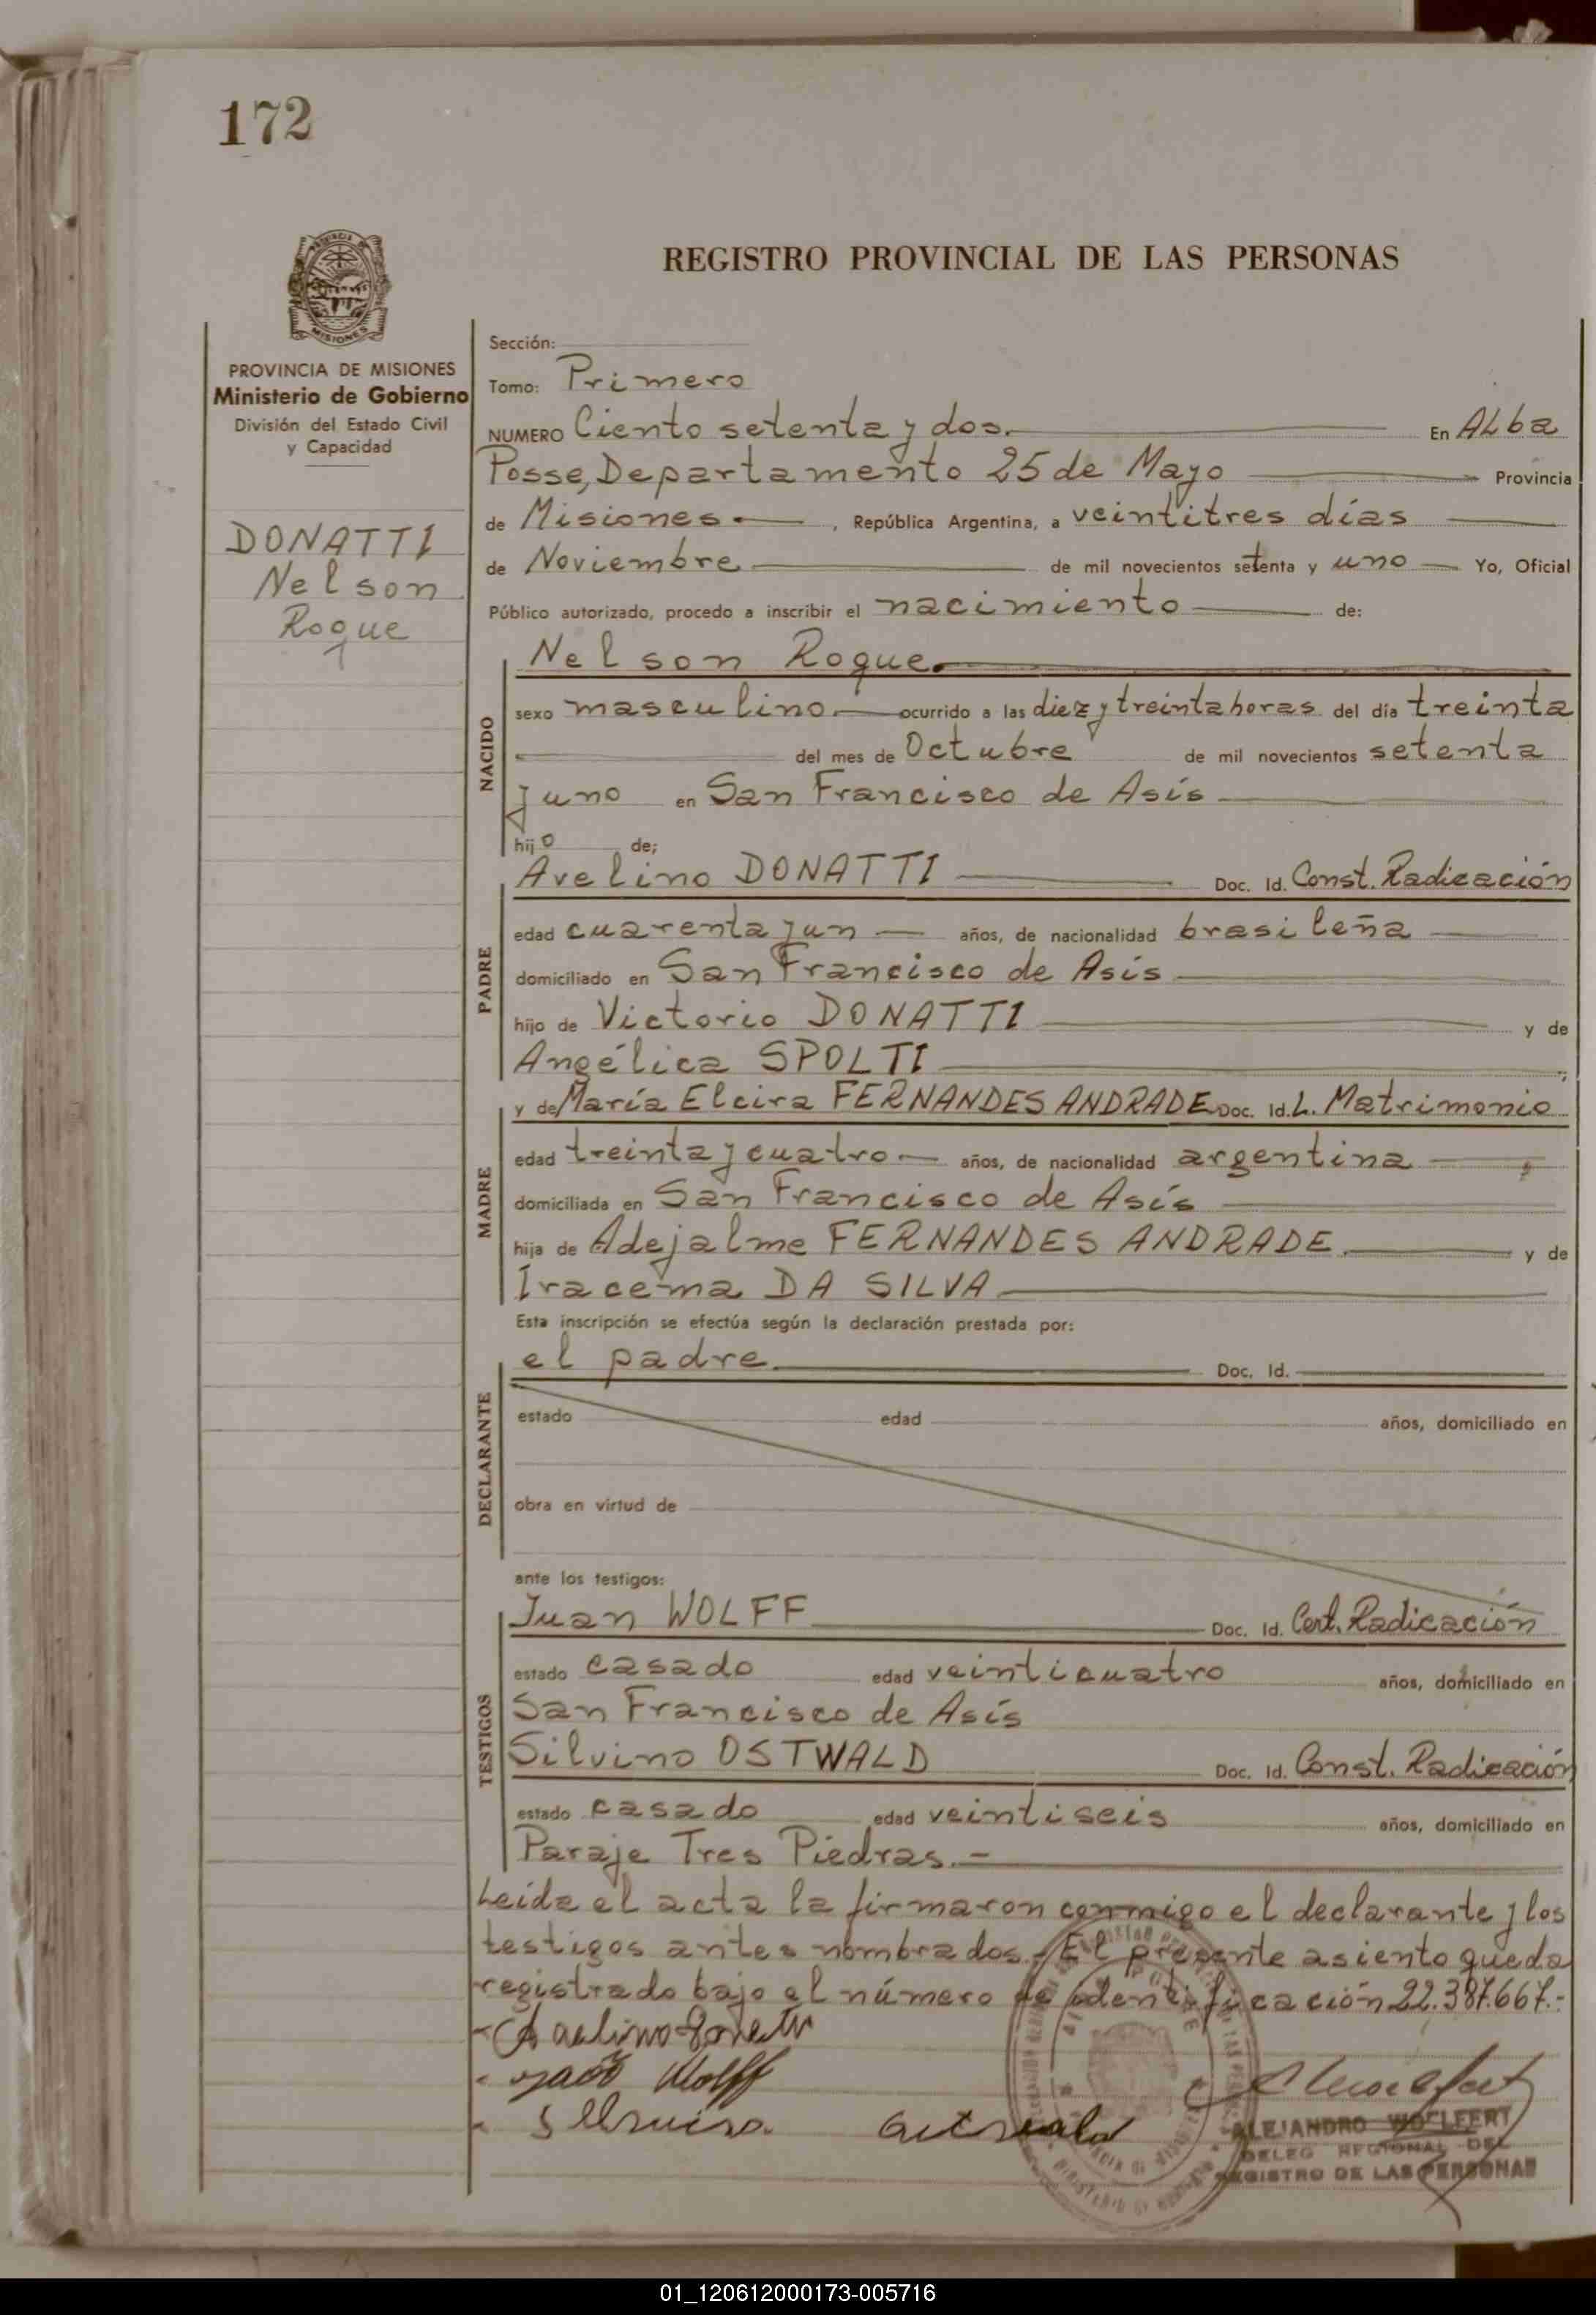 172
REGISTRO PROVINCIAL DE LAS PERSONAS
PROVINCIA DE MISIONES
Ministerio de Gobierno
División del Estado Civil
y Capacidad
DONATTI
Nelson
Roque
Sección:
Tomo: Primero
NUMERO Ciento setenta y dos. En ALba
Posse, Departamento 25 de Mayo Provincia
de Misiones. , República Argentina, a veintitres días
de Noviembre de mil novecientos setenta y uno Yo, Oficial
Público autorizado, procedo a inscribir el nacimiento de:
Nelson Roque.
NACIDO
sexo masculino. ocurrido a las diez y treinta horas del día treinta
del mes de Octubre de mil novecientos setenta
y uno en San Francisco de Asís
hijo de;
PADRE
Avelino DONATTI Doc. Id. Const. Radicación
edad cuarenta y un años, de nacionalidad brasileña
domiciliado en San Francisco de Asís
hijo de Victorio DONATTI y de
Angélica SPOLTI ;
MADRE
y de María Elcira FERNANDES ANDRADE Doc. Id. L. Matrimonio
edad treinta y cuatro años, de nacionalidad argentina
domiciliada en San Francisco de Asís
hija de Adejalme FERNANDES ANDRADE. y de
Iracema DA SILVA
Esta inscripción se efectúa según la declaración prestada por:
DECLARANTE
el padre. Doc. Id.
estado edad años, domiciliado en
obra en virtud de
ante los testigos:
TESTIGOS
Juan WOLFF Doc. Id. Cert. Radicación
estado casado edad veinticuatro años, domiciliado en
San Francisco de Asís
Silvino OSTWALD Doc. Id. Const. Radicación
estado casado edad veintiseis años, domiciliado en
Paraje Tres Piedras.-
Leída el acta la firmaron conmigo el declarante y los
testigos antes nombrados.- El presente asiento queda
registrado bajo el número de identificación 22.387.667.-
Wolff
ALEJANDRO WOLFERT
DELEG REGIONAL DEL
REGISTRO DE LAS PERSONAS
01_120612000173-005716